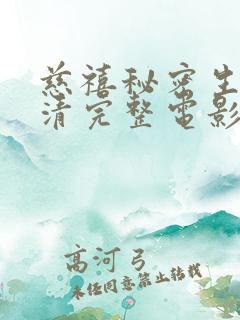 慈禧秘密生
清完整电影
高河弓
未经同意禁止转载